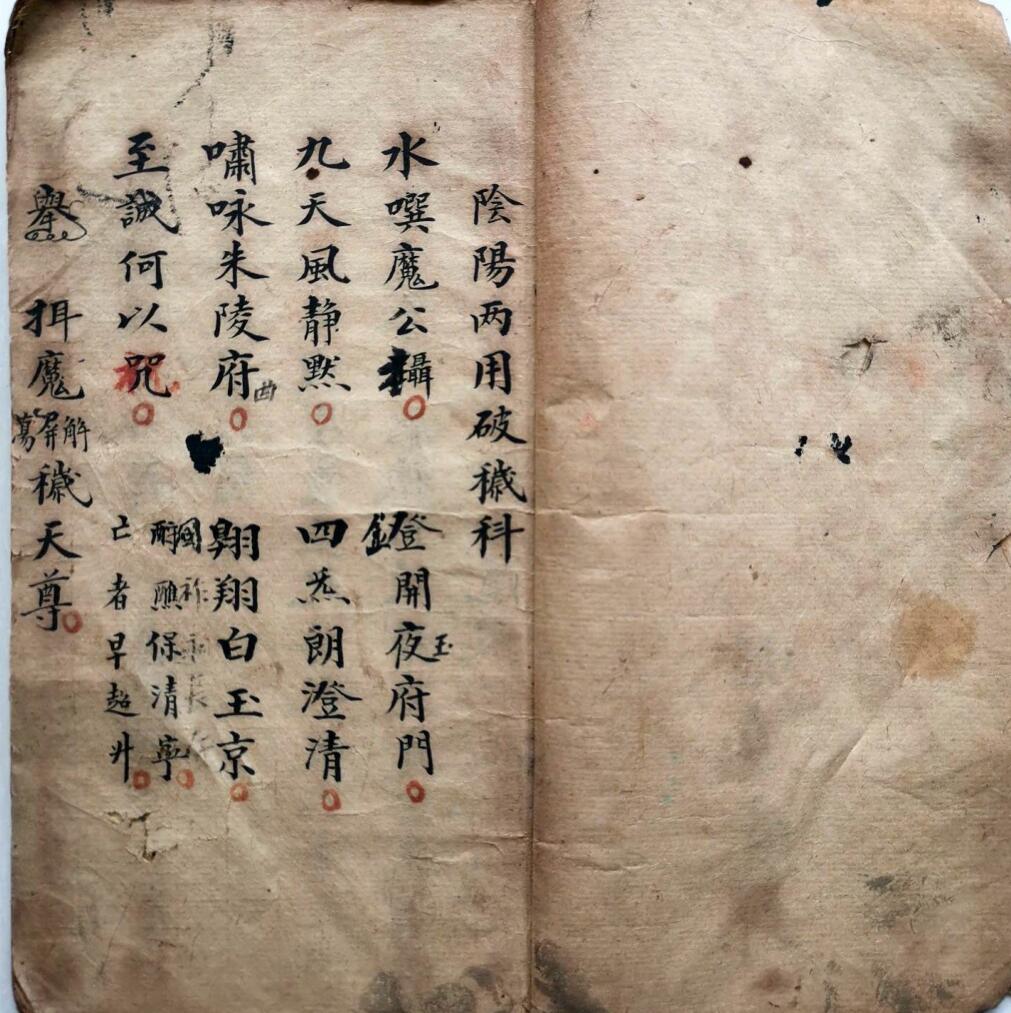 陰陽两用破穢科
水噀魔公攝 燈開夜府門
玉
九天風靜默 四炁朗澄清
嘯咏朱陵府 翱翔白玉京
至誠何以咒
國祚
酧醮保清寧
亡者早超升
舉 揖魔 解屏蕩 穢天尊